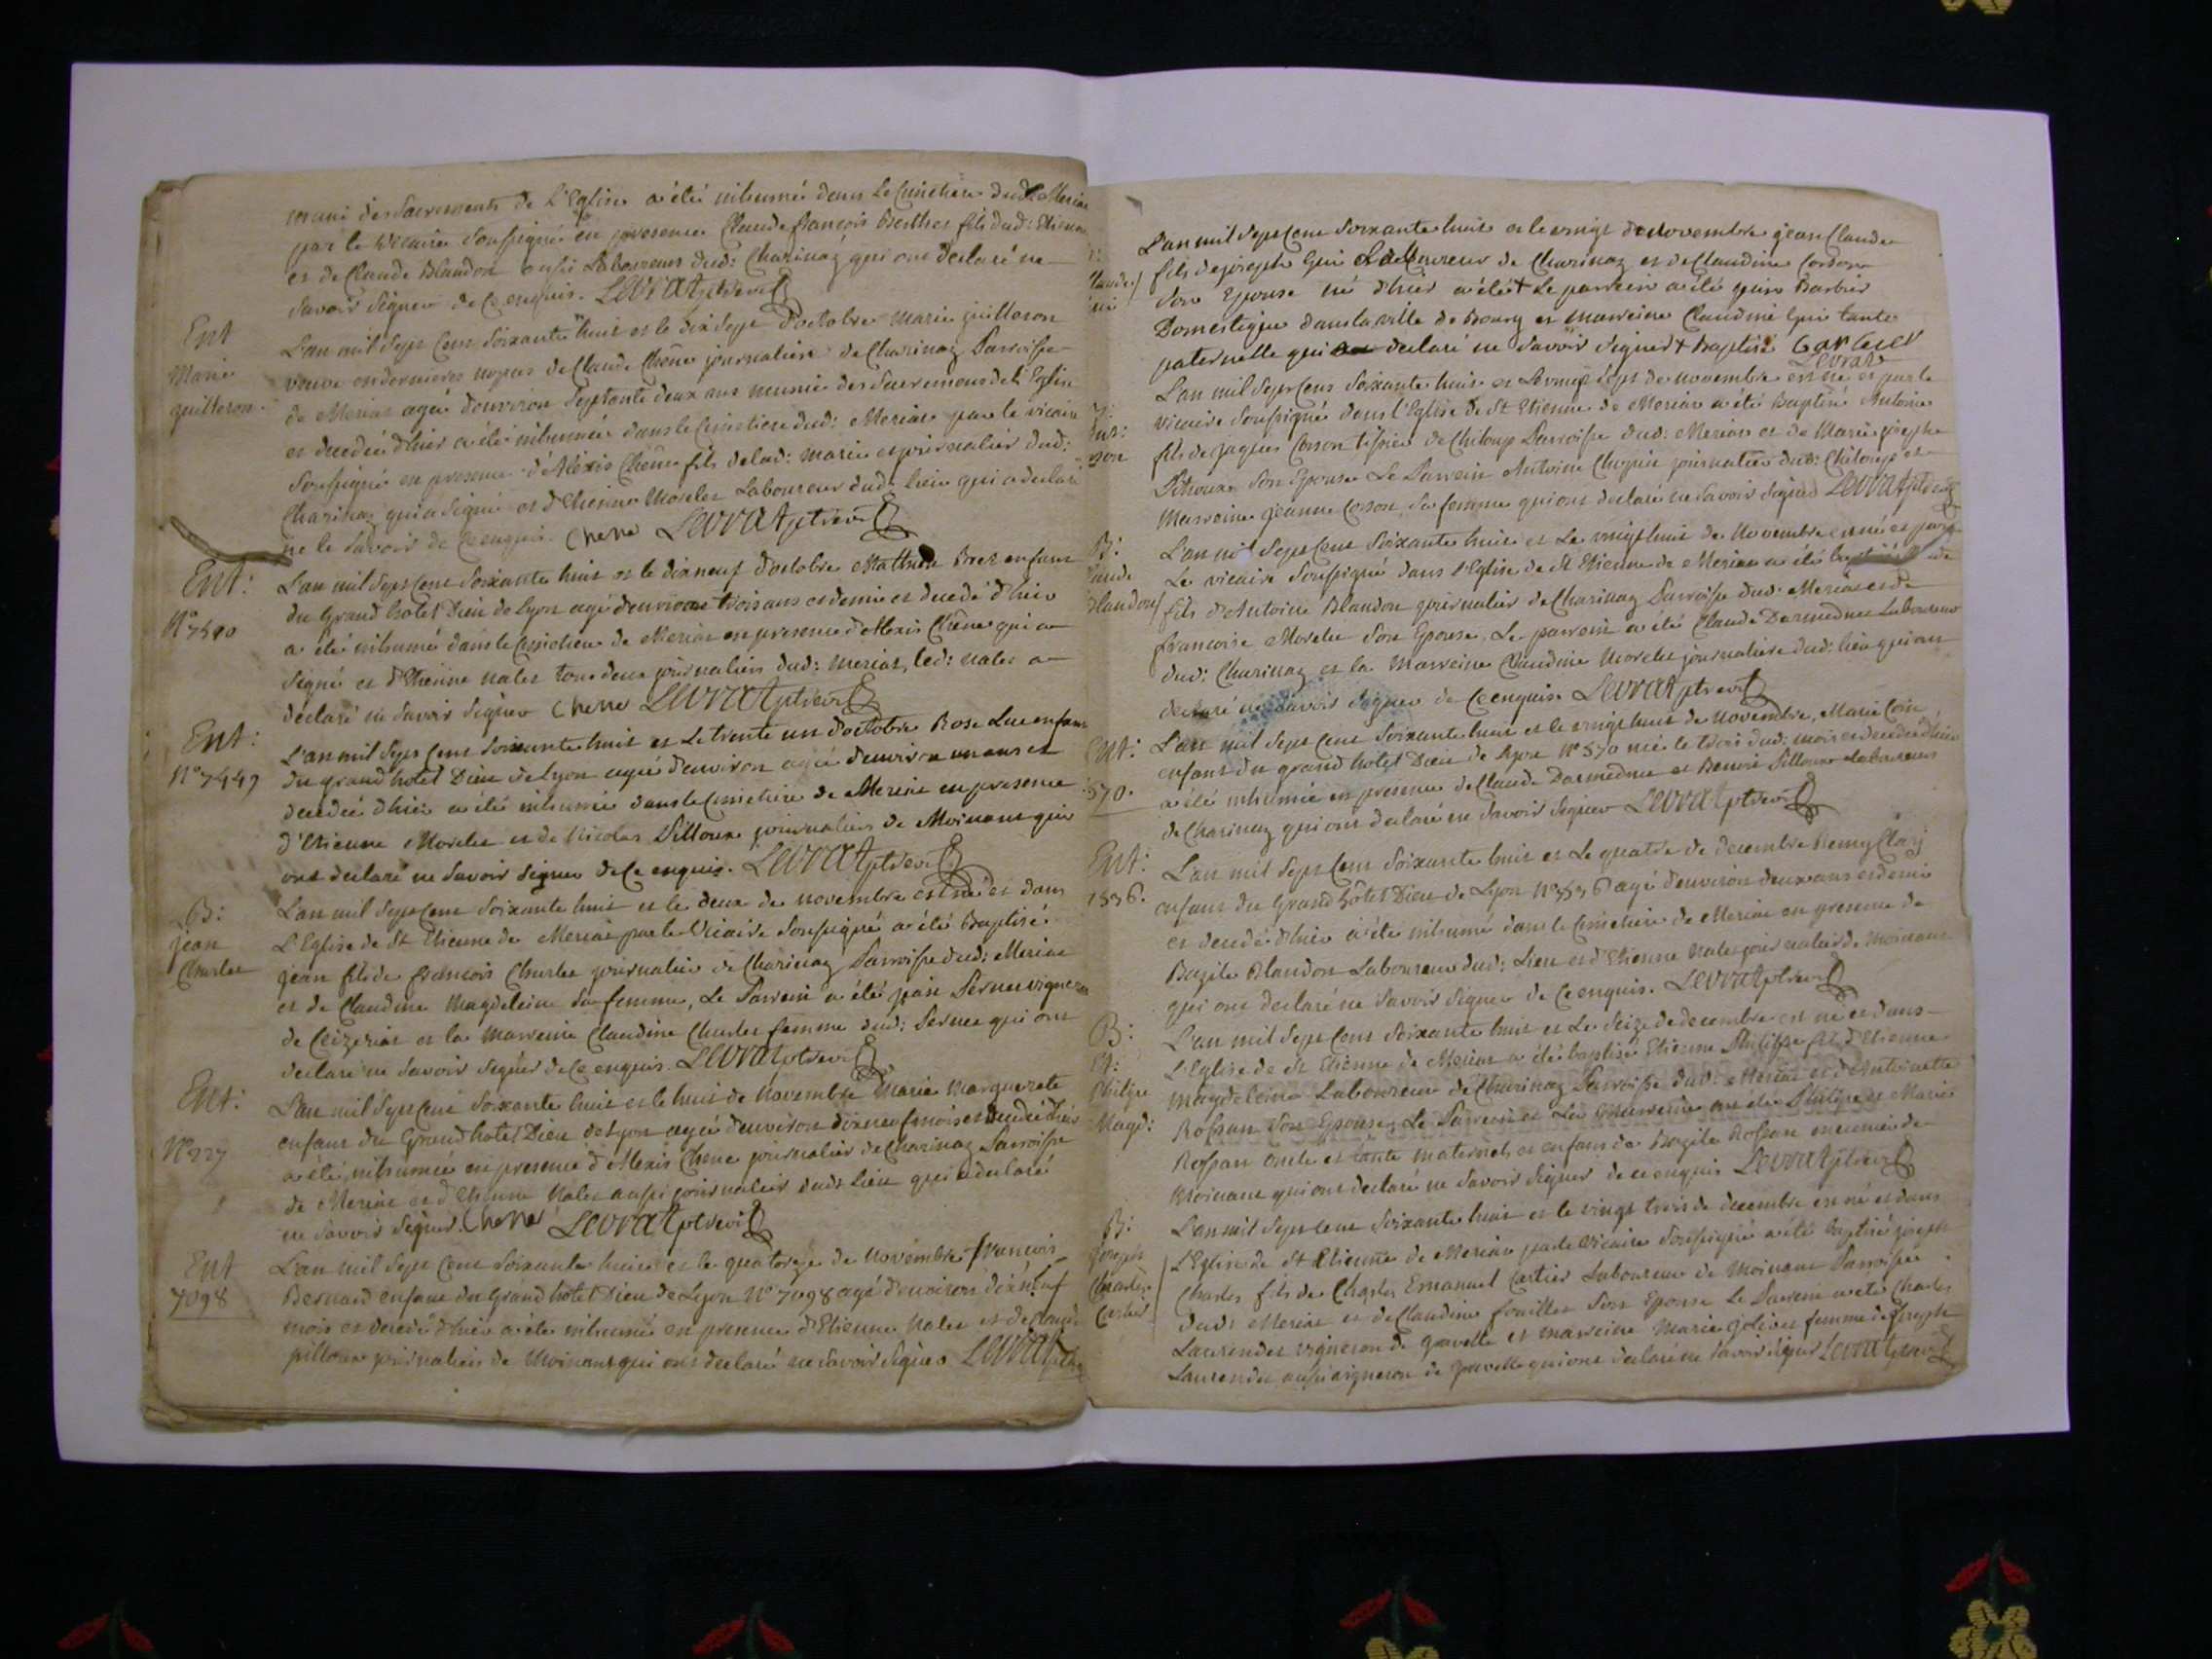 muni des Sacrements de L'Eglise a été inhumé dans Le Cimetiere dud: Meriat
par le vicaire Soussigné en presence Claude françois Berthet fils dud: Etienne
et de Claude Blandon aussi Laboureurs dud: Charinaz qui ont declaré ne
Savoir Signer de Ce enquis. Levrat ptre vic
Ent
Marie
guilleron
L'an mil Sept Cent Soixante huit et le dix Sept d'octobre Marie guilleron
veuve en dernieres nopces de Claude Chêne journaliere de Charinaz Parroisse
de Meriat agée d'environ Septante deux ans munie des Sacremens de L'Eglise
et decedée d'hier a été inhumée dans le Cimetiere dud: Meriat par le vicaire
Soussigné en presence d'Alexis Chêne fils de lad: marie et journalier dud:
Charinaz qui a Signé et d'Etienne Morelet Laboureur dud: lieu qui a declaré
ne le Savoir de Ce enquis. Chene Levrat ptre vic
Ent:
N° 7590
L'an mil Sept Cent Soixante huit et le dix neuf d'octobre Mathieu Bret enfant
du Grand hotel Dieu de Lyon agé d'environ trois ans et demi et decedé d'hier
a été inhumé dans le Cimetiere de Meriat en presence d'Alexis Chêne qui a
Signé et d'Etienne Nalet tous deux journaliers dud: Meriat, led: Nalet a
declaré ne Savoir Signer Chene Levrat ptre vic
Ent:
N° 7449
L'an mil Sept Cent Soixante huit et Le trente un d'octobre Rose Luc enfant
du grand hotel Dieu de Lyon agée d'environ agée d'environ un ans et
decedée d'hier a été inhumée dans le Cimetiere de Meriat en presence
d'Etienne Morelet et de Nicolas Pilloux journaliers de Moinans qui
ont declaré ne Savoir Signer de Ce enquis. Levrat ptre vic
B:
jean
Charlet
L'an mil Sept Cent Soixante huit et le deux de novembre est né et dans
L'Eglise de St Etienne de Meriat par le Vicaire Soussigné a été Baptisé
jean fils de françois Charlet journalier de Charinaz Parroisse dud: Meriat
et de Claudine Magdeleine Sa femme, Le Parrein a été jean Pernet vigneron
de Ceizeriat et la Marreine Claudine Charlet femme dud: Pernet qui ont
declaré ne Savoir Signer de Ce enquis. Levrat ptre vic
Ent:
N° 227
L'an mil Sept Cent Soixante huit et le huit de Novembre Marie Marguerete
enfant du Grand hotel Dieu de Lyon agée d'environ dix neuf mois et decedée d'hier
a été inhumée en presence d'Alexis Chene journalier de Charinaz Parroisse
de Meriat et d'Etienne Nalet aussi journalier dudt Lieu qui a declaré
ne Savoir Signer. Chene Levrat ptre vic
Ent
7098
L'an mil Sept Cent Soixante huit et le quatorze de Novembre françois
Bernard enfant du Grand hôtel Dieu de Lyon N° 7098 agé d'environ dix neuf
mois et decedé d'hier a été inhumé en presence d'Etienne Nalet et de Claude
pilloux journaliers de Moinans qui ont declaré ne Savoir Signer Levrat ptre
L'an mil Sept Cent Soixante huit et le vingt de Novembre jean Claude
fils de joseph Gui Laboureur de Charinaz et de Claudine Cordon
Son Epouse né d'hier a été + Le parrein a été jean Barbier
Domestique dans la ville de Bourg et Marreine Claudine Gui tante
paternelle qui ont declaré ne Savoir Signer + Baptisé
Levrat
L'an mil Sept Cent Soixante huit et Le vingt Sept de Novembre est né et par le
vicaire Soussigné dans l'Eglise de St Etienne de Meriat a été Baptisé Antoine
fils de jaques Corson tissier de Chiloup Parroisse dud: Meriat et de Marie josephe
Son Epouse Le Parrein Antoine journalier dud: Chiloup et
Marreine jeanne Corson Sa femme qui ont declaré ne Savoir Signer Levrat ptre vic
B:
Claude
Blandon
L'an mil Sept Cent Soixante huit et Le vingt huit de Novembre est né et par
Le vicaire Soussigné dans l'Eglise de St Etienne de Meriat a été baptisé Claude
fils d'Antoine Blandon journalier de Charinaz Parroisse dud: Meriat et de
francoise Morelet Son Epouse, Le parrein a été Claude Darmedru Laboureur
dud: Charinaz et la Marreine Claudine Morelet journaliere dud: lieu qui ont
declaré ne Savoir Signer de Ce enquis. Levrat ptre vic
Ent:
570.
L'an mil Sept Cent Soixante huit et le vingt huit de Novembre, Marie
enfant du grand hotel Dieu de Lyon N° 570 née le trois dud: mois et decedée d'hier
a été inhumée en presence de Claude Darmedru et Benoit Pilloux Laboureurs
de Charinaz qui ont declaré ne Savoir Signer Levrat ptre vic
Ent:
7536.
L'an mil Sept Cent Soixante huit et Le quatre de decembre Remy
enfant du Grand hôtel Dieu de Lyon N° 7536 agé d'environ deux ans et demi
et decedé d'hier a été inhumé dans le Cimetiere de Meriat en presence de
Bazile Blandon Laboureur dud: Lieu et d'Etienne Nalet journalier de Moinans
qui ont declaré ne Savoir Signer de Ce enquis. Levrat ptre vic
B:
Et:
Philipe
Magd:
L'an mil Sept Cent Soixante huit et Le Seize de decembre est né et dans
L'Eglise de St Etienne de Meriat a été baptisé Etienne Philippe fils d'Etienne
Magdeleine Laboureur de Charinaz Parroisse dud: Meriat et d'Antoinette
Rossan Son Epouse, Le Parrein et La Marreine ont été Philipe et Marie
Rossan Oncle et tante maternels et enfans de Bazile Rossan meunier de
Moinans qui ont declaré ne Savoir Signer de ce enquis Levrat ptre vic
B:
Joseph
Charles
Cartier
L'an mil Sept Cent Soixante huit et le vingt trois de decembre est né et dans
L'Eglise de St Etienne de Meriat par le Vicaire Soussigné a été baptisé joseph
Charles fils de Charles Emanuel Cartier Laboureur de Moinans Parroisse
dudt Meriat et de Claudine fouillet Son Epouse Le Parrein a été Charles
Laurendet vigneron de gravelle et marreine Marie femme de Joseph
Laurendet aussi vigneron de gravelle qui ont declaré ne Savoir Signer Levrat ptre vic